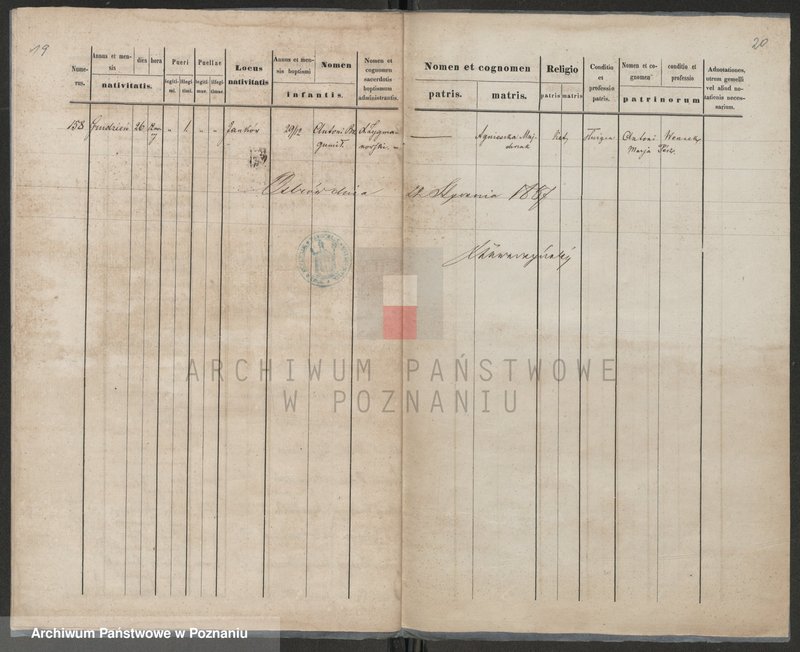 19
20
Nume-
rus.
Annus et men-
sis
dies
hora
nativitatis.
Pueri
legiti-
mi.
illegi-
timi.
Puellae
legiti-
mae.
illegi-
timae.
Locus
nativitatis
Annus et men-
sis baptismi
Nomen
infantis.
Nomen et
cognomen
sacerdotis
baptismum
administrantis.
Nomen et cognomen
patris.
matris.
Religio
patris
matris
Conditio
et
professio
patris.
Nomen et co-
gnomen
conditio et
professio
patrinorum
Adnotationes,
utrum gemelli
vel aliud no-
tationis neces-
sarium.
158 Grudzień 26 „ 1. „ „ Janków 29/12 Antoni Bo- Agnieszka Maj- Kat. Antoni
gumił. Marja
Ostrów dnia 22 Stycznia 1887
ARCHIWUM PAŃSTWOWE
W POZNANIU
Archiwum Państwowe w Poznaniu